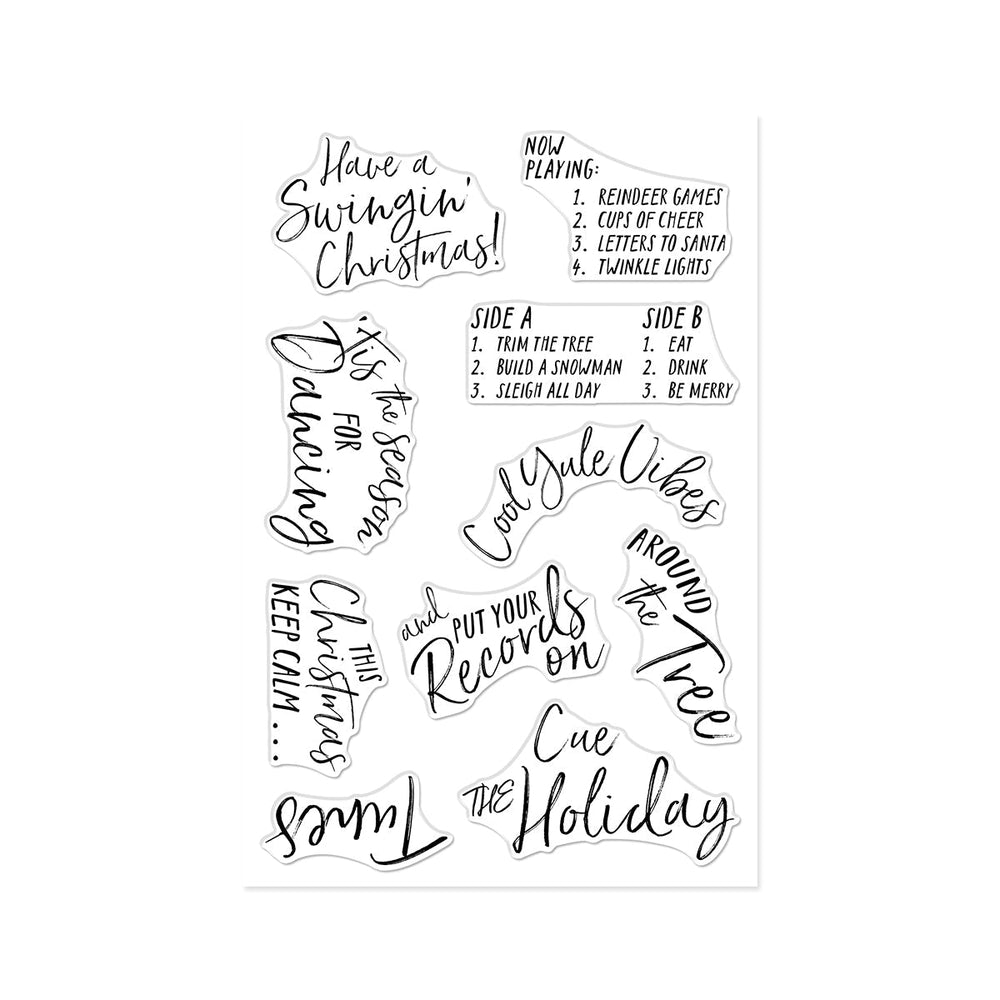 Have a
Swingin'
Christmas!
NOW
PLAYING:
1. REINDEER GAMES
2. CUPS OF CHEER
3. LETTERS TO SANTA
4. TWINKLE LIGHTS
SIDE A
1. TRIM THE TREE
2. BUILD A SNOWMAN
3. SLEIGH ALL DAY
SIDE B
1. EAT
2. DRINK
3. BE MERRY
'Tis the season
FOR
Dancing
Cool Yule Vibes
THIS
Christmas
KEEP CALM...
and PUT YOUR
Records
on
AROUND
the
Tree
Tunes
Cue
THE Holiday